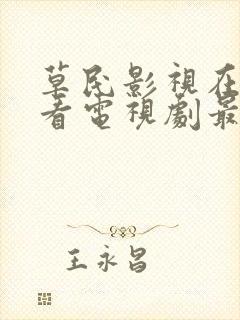 草民影視在
看電視劇最
王永昌